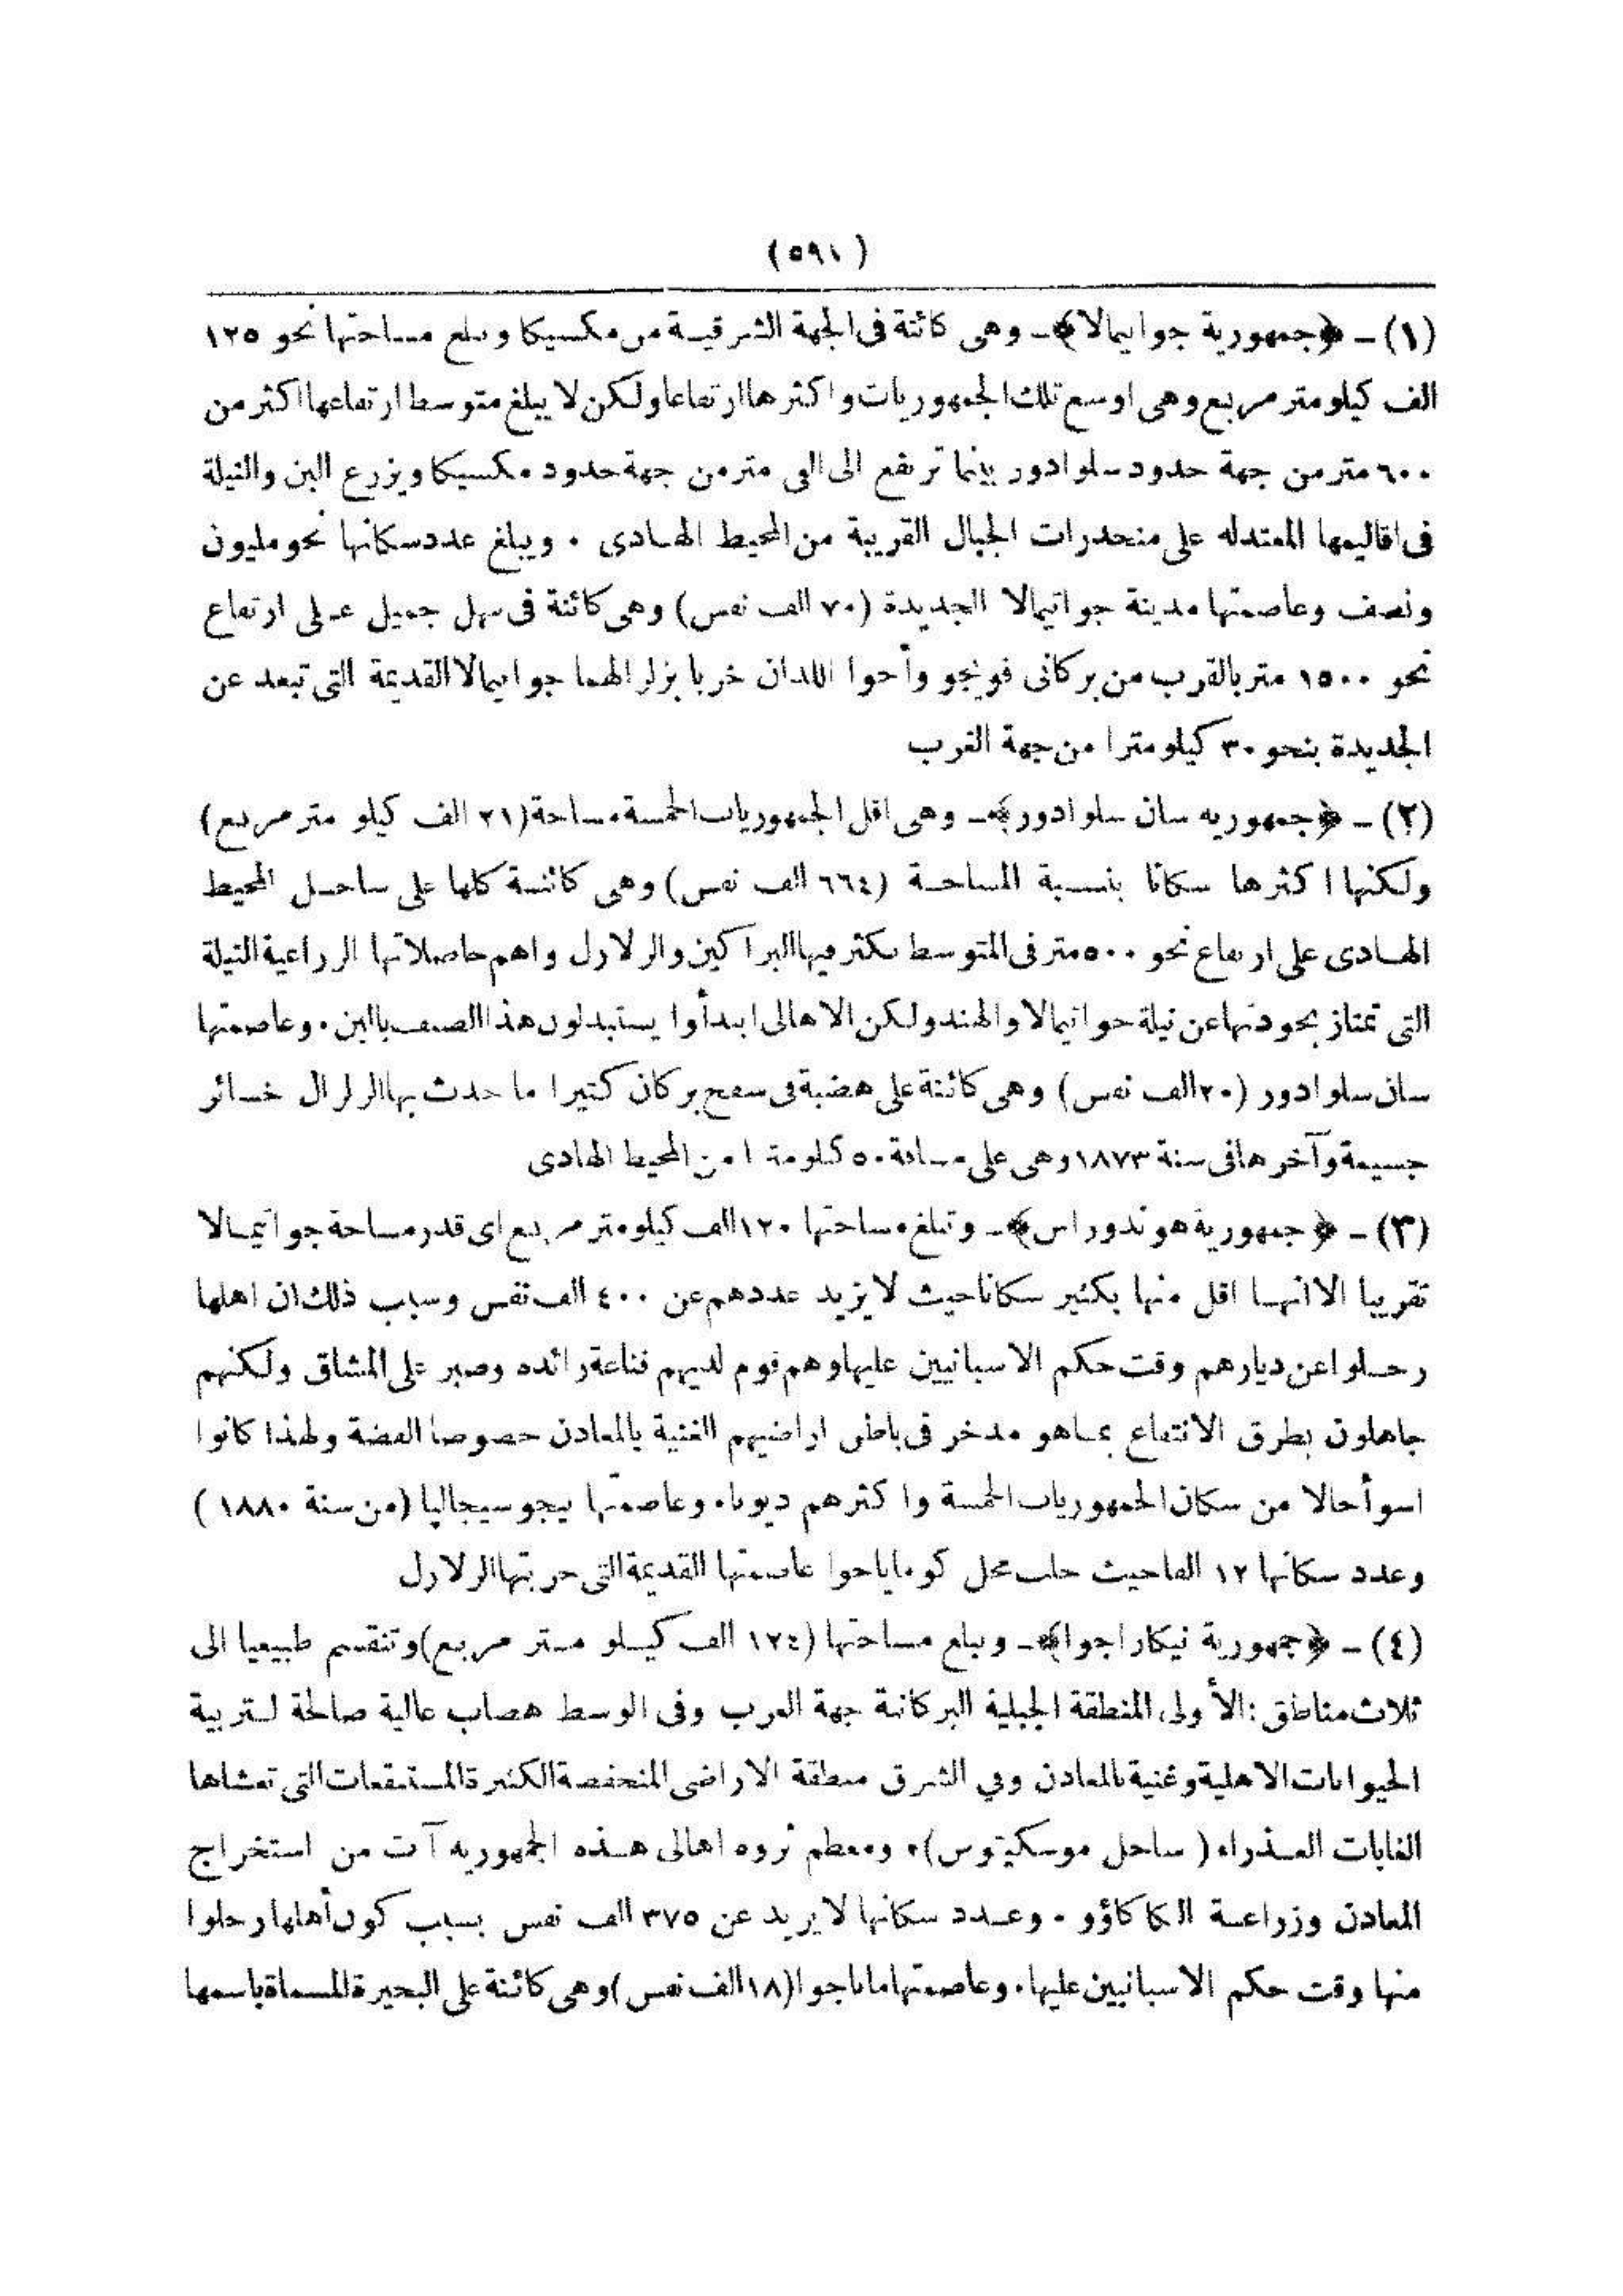 (٥٩١)
(١) ـ ﴿جمهورية جواتيمالا﴾ـ وهى كائنة فى الجهة الشرقية من مكسيكا وتبلغ مساحتها نحو ١٢٥
الف كيلومتر مربع وهى اوسع تلك الجمهوريات واكثرها ارتفاعا ولكن لا يبلغ متوسط ارتفاعها اكثر من
٦٠٠ متر من جهة حدود سلوادور بينما ترتفع الى الفى متر من جهة حدود مكسيكا ويزرع البن والنيلة
فى اقاليمها المعتدله على منحدرات الجبال القريبة من المحيط الهادى . ويبلغ عدد سكانها نحو مليون
ونصف وعاصمتها مدينة جواتيمالا الجديدة (٧٠ الف نفس) وهى كائنة فى سهل جميل على ارتفاع
نحو ١٥٠٠ متر بالقرب من بركانى فويجو وأجوا اللذان خربا بزلزالهما جواتيمالا القديمة التى تبعد عن
الجديدة بنحو ٣٠ كيلومترا من جهة الغرب
(٢) ـ ﴿جمهوريه سان سلوادور﴾ـ وهى اقل الجمهوريات الخمسة مساحة (٢١ الف كيلو متر مربع)
ولكنها اكثرها سكانا بنسبة المساحة (٦٦٤ الف نفس) وهى كائنة كلها على ساحل المحيط
الهادى على ارتفاع نحو ٥٠٠ متر فى المتوسط تكثر فيها البراكين والزلازل واهم حاصلاتها الزراعية النيلة
التى تمتاز بجودتها عن نيلة جواتيمالا والهند ولكن الاهالى ابتدأوا يستبدلون هذا الصنف بالبن . وعاصمتها
سان سلوادور (٢٠ الف نفس) وهى كائنة على هضبة فى سفح بركان كثيرا ما حدث بها الزلزال خسائر
جسيمة وآخرها فى سنة ١٨٧٣ وهى على مسافة ٥٠ كيلومترا من المحيط الهادى
(٣) ـ ﴿جمهورية هوندوراس﴾ـ وتبلغ مساحتها ١٢٠ الف كيلومتر مربع اى قدر مساحة جواتيمالا
تقريبا الا انها اقل منها بكثير سكانا حيث لا يزيد عددهم عن ٤٠٠ الف نفس وسبب ذلك ان اهلها
رحلوا عن ديارهم وقت حكم الاسبانيين عليها وهم قوم لديهم قناعة زائده وصبر على المشاق ولكنهم
جاهلون بطرق الانتفاع بما هو مدخر فى باطن اراضيهم الغنية بالمعادن خصوصا الفضة ولهذا كانوا
اسوأ حالا من سكان الجمهوريات الخمسة واكثرهم ديونا. وعاصمتها تيجوسيجالپا (من سنة ١٨٨٠)
وعدد سكانها ١٢ الفا حيث حلت محل كوماياجوا عاصمتها القديمة التى خربتها الزلازل
(٤) ـ ﴿جمهورية نيكاراجوا﴾ـ وتبلغ مساحتها (١٢٤ الف كيلو متر مربع) وتنقسم طبيعيا الى
ثلاث مناطق : الأولى المنطقة الجبلية البركانية جهة الغرب وفى الوسط هضاب عالية صالحة لتربية
الحيوانات الاهلية وغنية بالمعادن وفي الشرق منطقة الاراضى المنخفضة الكثيرة المستنقعات التى تغشاها
الغابات العذراء (ساحل موسكيتوس). ومعظم ثروه اهالى هذه الجمهوريه آت من استخراج
المعادن وزراعة الكاكاؤو . وعدد سكانها لا يزيد عن ٣٧٥ الف نفس بسبب كون أهلها رحلوا
منها وقت حكم الاسبانيين عليها. وعاصمتها ماناجوا (١٨ الف نفس) وهى كائنة على البحيرة المسماة باسمها